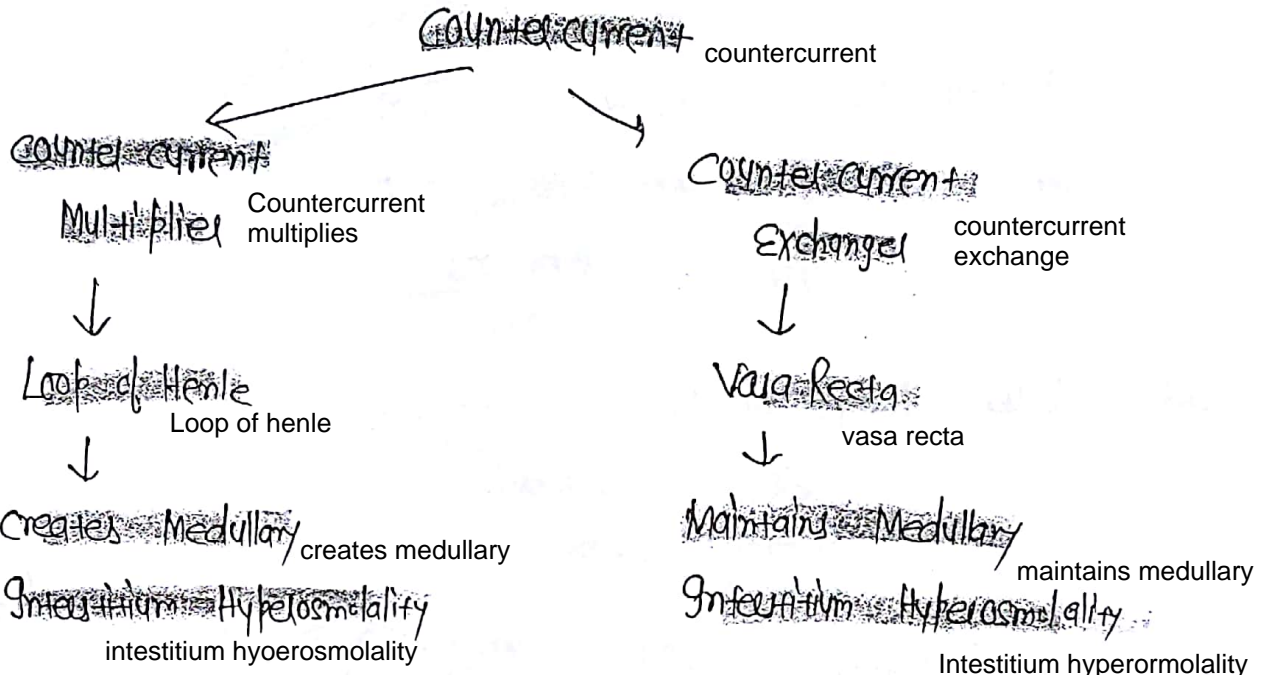 Countercurrent
countercurrent
Counter current
Multiplier
Countercurrent
multiplies
Loop of Henle
Loop of henle
Creates Medullary
creates medullary
Interstitium Hyperosmolality
intestitium hyoerosmolality
Counter Current
Exchanger
countercurrent
exchange
Vasa Recta
vasa recta
Maintains Medullary
maintains medullary
Interstitium Hyperosmolality
Intestitium hyperormolality